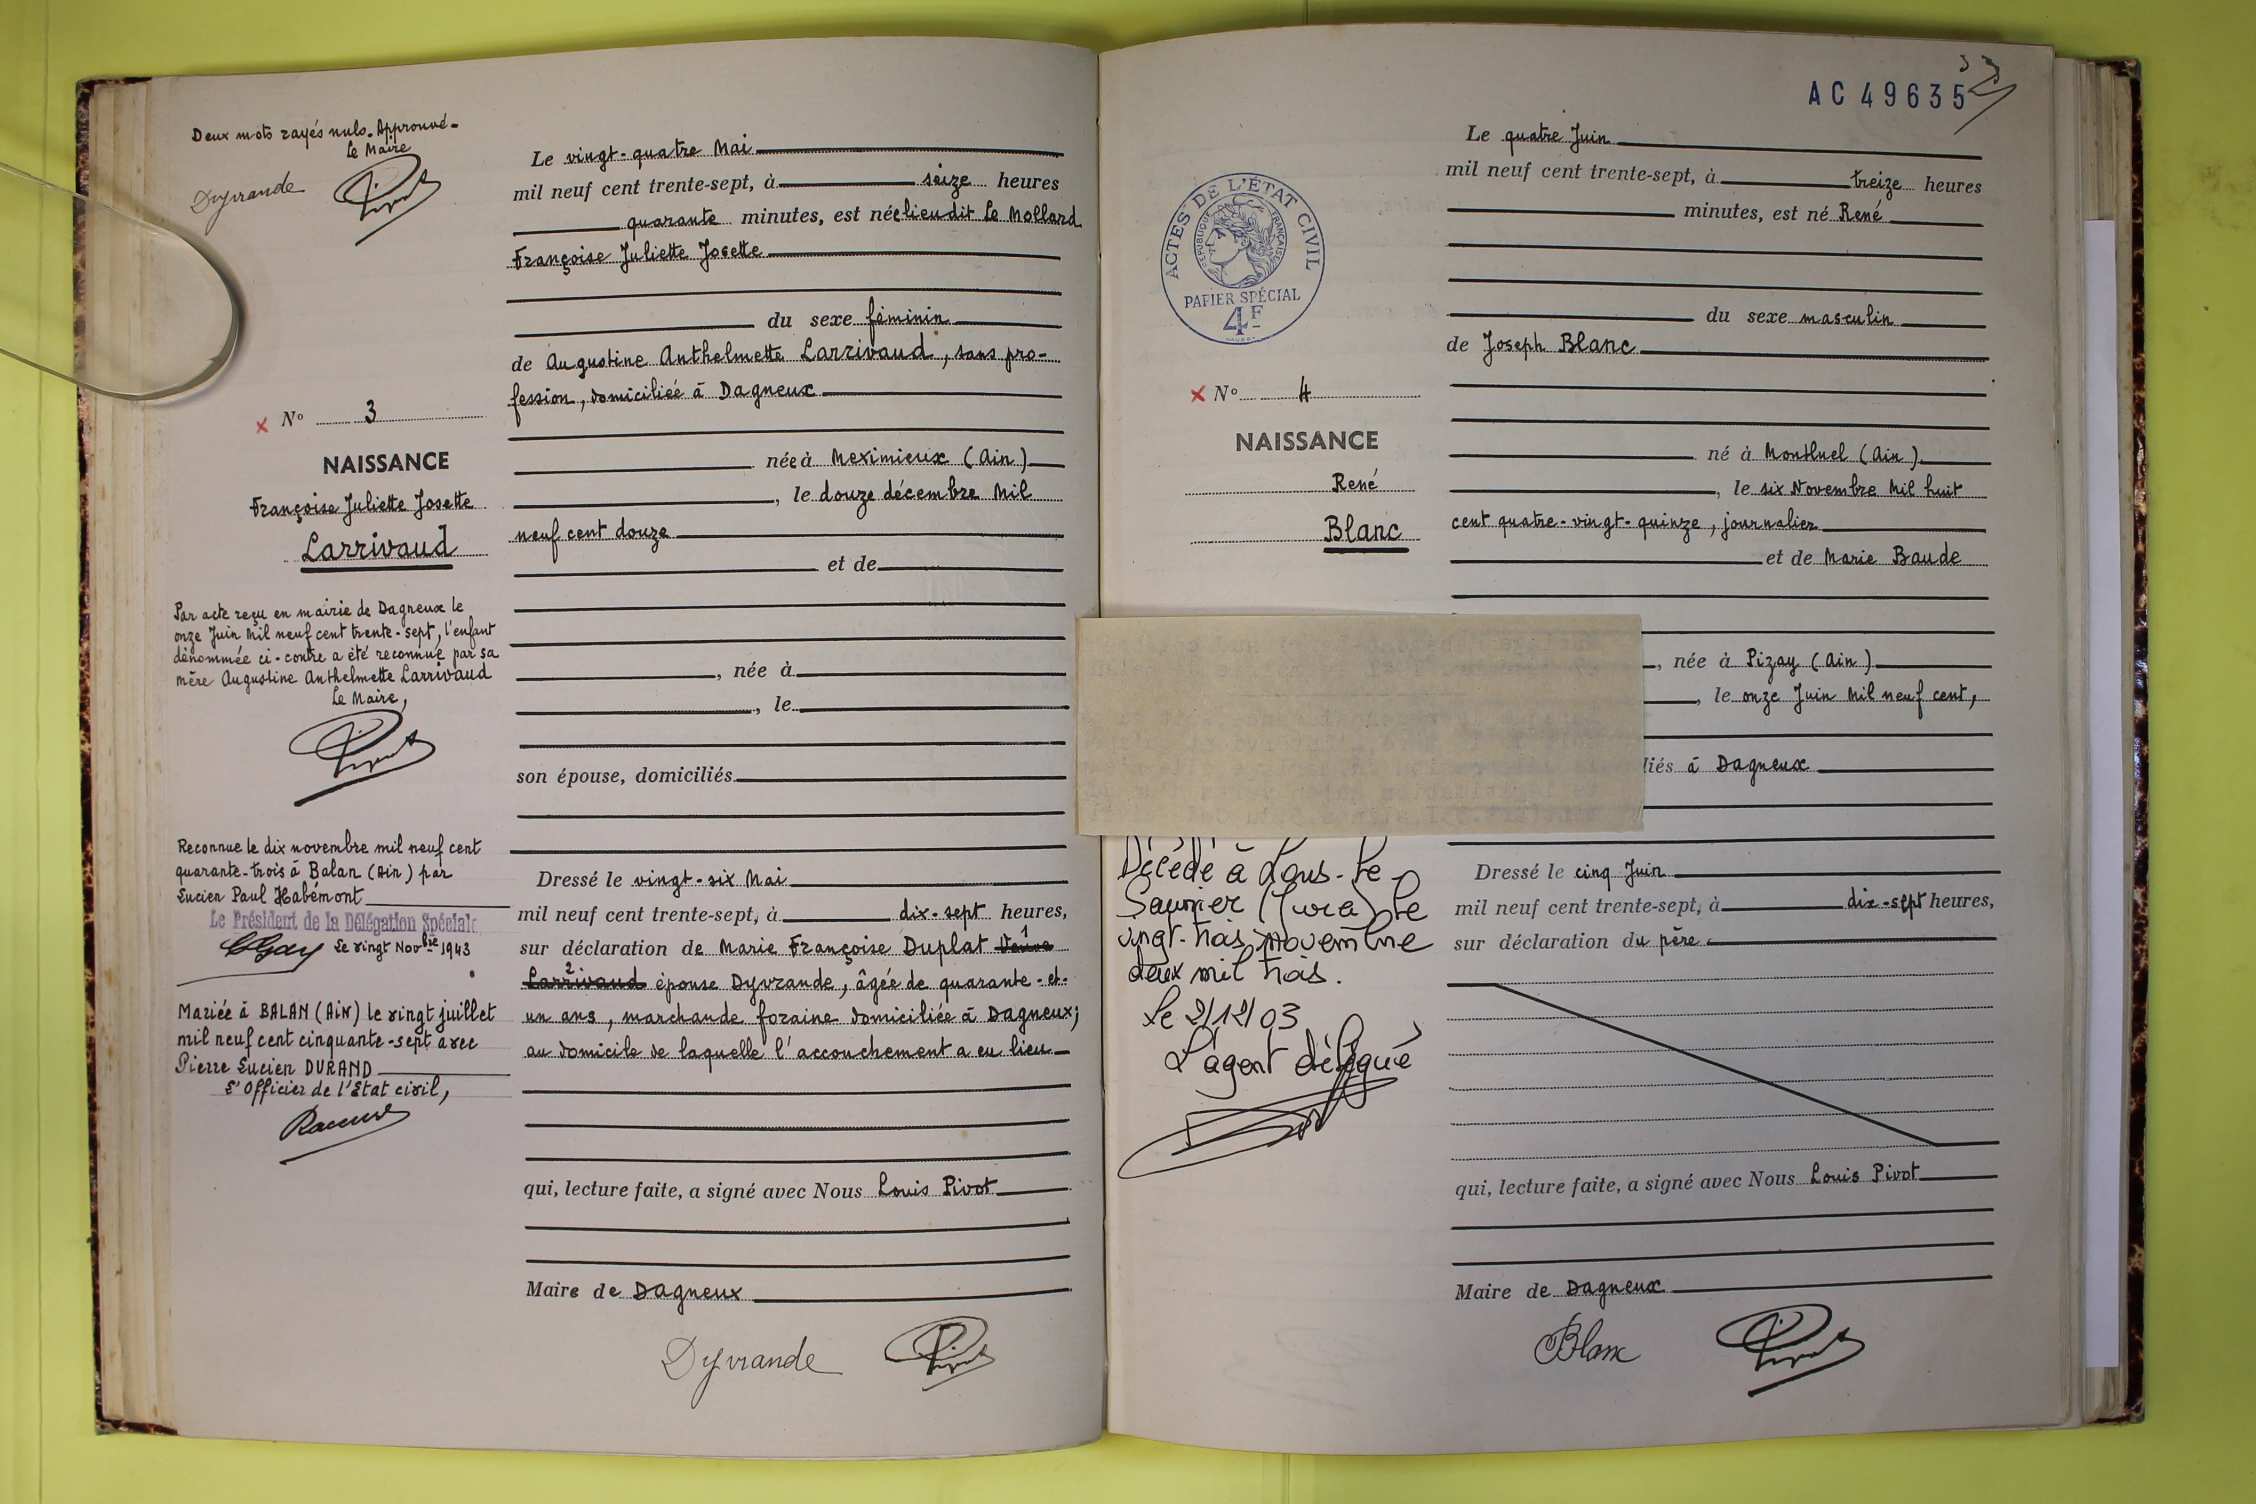 Deux mots rayés nuls. Approuvé.
Le Maire
Dyvrande
Le vingt-quatre Mai
mil neuf cent trente-sept, à seize heures
quarante minutes, est née lieudit Le Mollard
Françoise Juliette Josette
du sexe féminin
de Augustine Anthelmette Larrivaud, sans pro-
fession, domiciliée à Dagneux
née à Meximieux (Ain)
, le douze décembre Mil
neuf cent douze
et de
, née à
, le
son épouse, domiciliés
Dressé le vingt-six Mai
mil neuf cent trente-sept, à dix-sept heures,
sur déclaration de Marie Françoise Duplat Veuve
Larrivaud épouse Dyvrande, âgée de quarante-et-
un ans, marchande foraine domiciliée à Dagneux;
au domicile de laquelle l'accouchement a eu lieu
qui, lecture faite, a signé avec Nous Louis Pivot
Maire de Dagneux
Dyvrande
No 3
NAISSANCE
Françoise Juliette Josette
Larrivaud
Par acte reçu en mairie de Dagneux le
onze Juin Mil neuf cent trente-sept, l'enfant
dénommée ci-contre a été reconnue par sa
mère Augustine Anthelmette Larrivaud
Le Maire,
Reconnue le dix novembre mil neuf cent
quarante-trois à Balan (Ain) par
Lucien Paul Habémont
Le Président de la Délégation Spéciale
Le vingt Novbre 1943
Mariée à BALAN (AiN) le vingt juillet
mil neuf cent cinquante-sept avec
Pierre Lucien DURAND
L'Officier de l'Etat civil,
AC 49635
ACTES DE L'ÉTAT CIVIL
RÉPUBLIQUE FRANÇAISE
PAPIER SPÉCIAL
4F
No 4
NAISSANCE
René
Blanc
Décédé à Lons-le-
Saunier (Jura) le
vingt-trois novembre
deux mil trois.
Le 2/12/03
L'agent délégué
Le quatre Juin
mil neuf cent trente-sept, à treize heures
minutes, est né René
du sexe masculin
de Joseph Blanc
né à Montluel (Ain)
, le six Novembre Mil huit
cent quatre-vingt-quinze, journalier
et de Marie Baude
, née à Pizay (Ain)
, le onze Juin Mil neuf cent,
liés à Dagneux
Dressé le cinq Juin
mil neuf cent trente-sept, à dix-sept heures,
sur déclaration du père
qui, lecture faite, a signé avec Nous Louis Pivot
Maire de Dagneux
Blanc